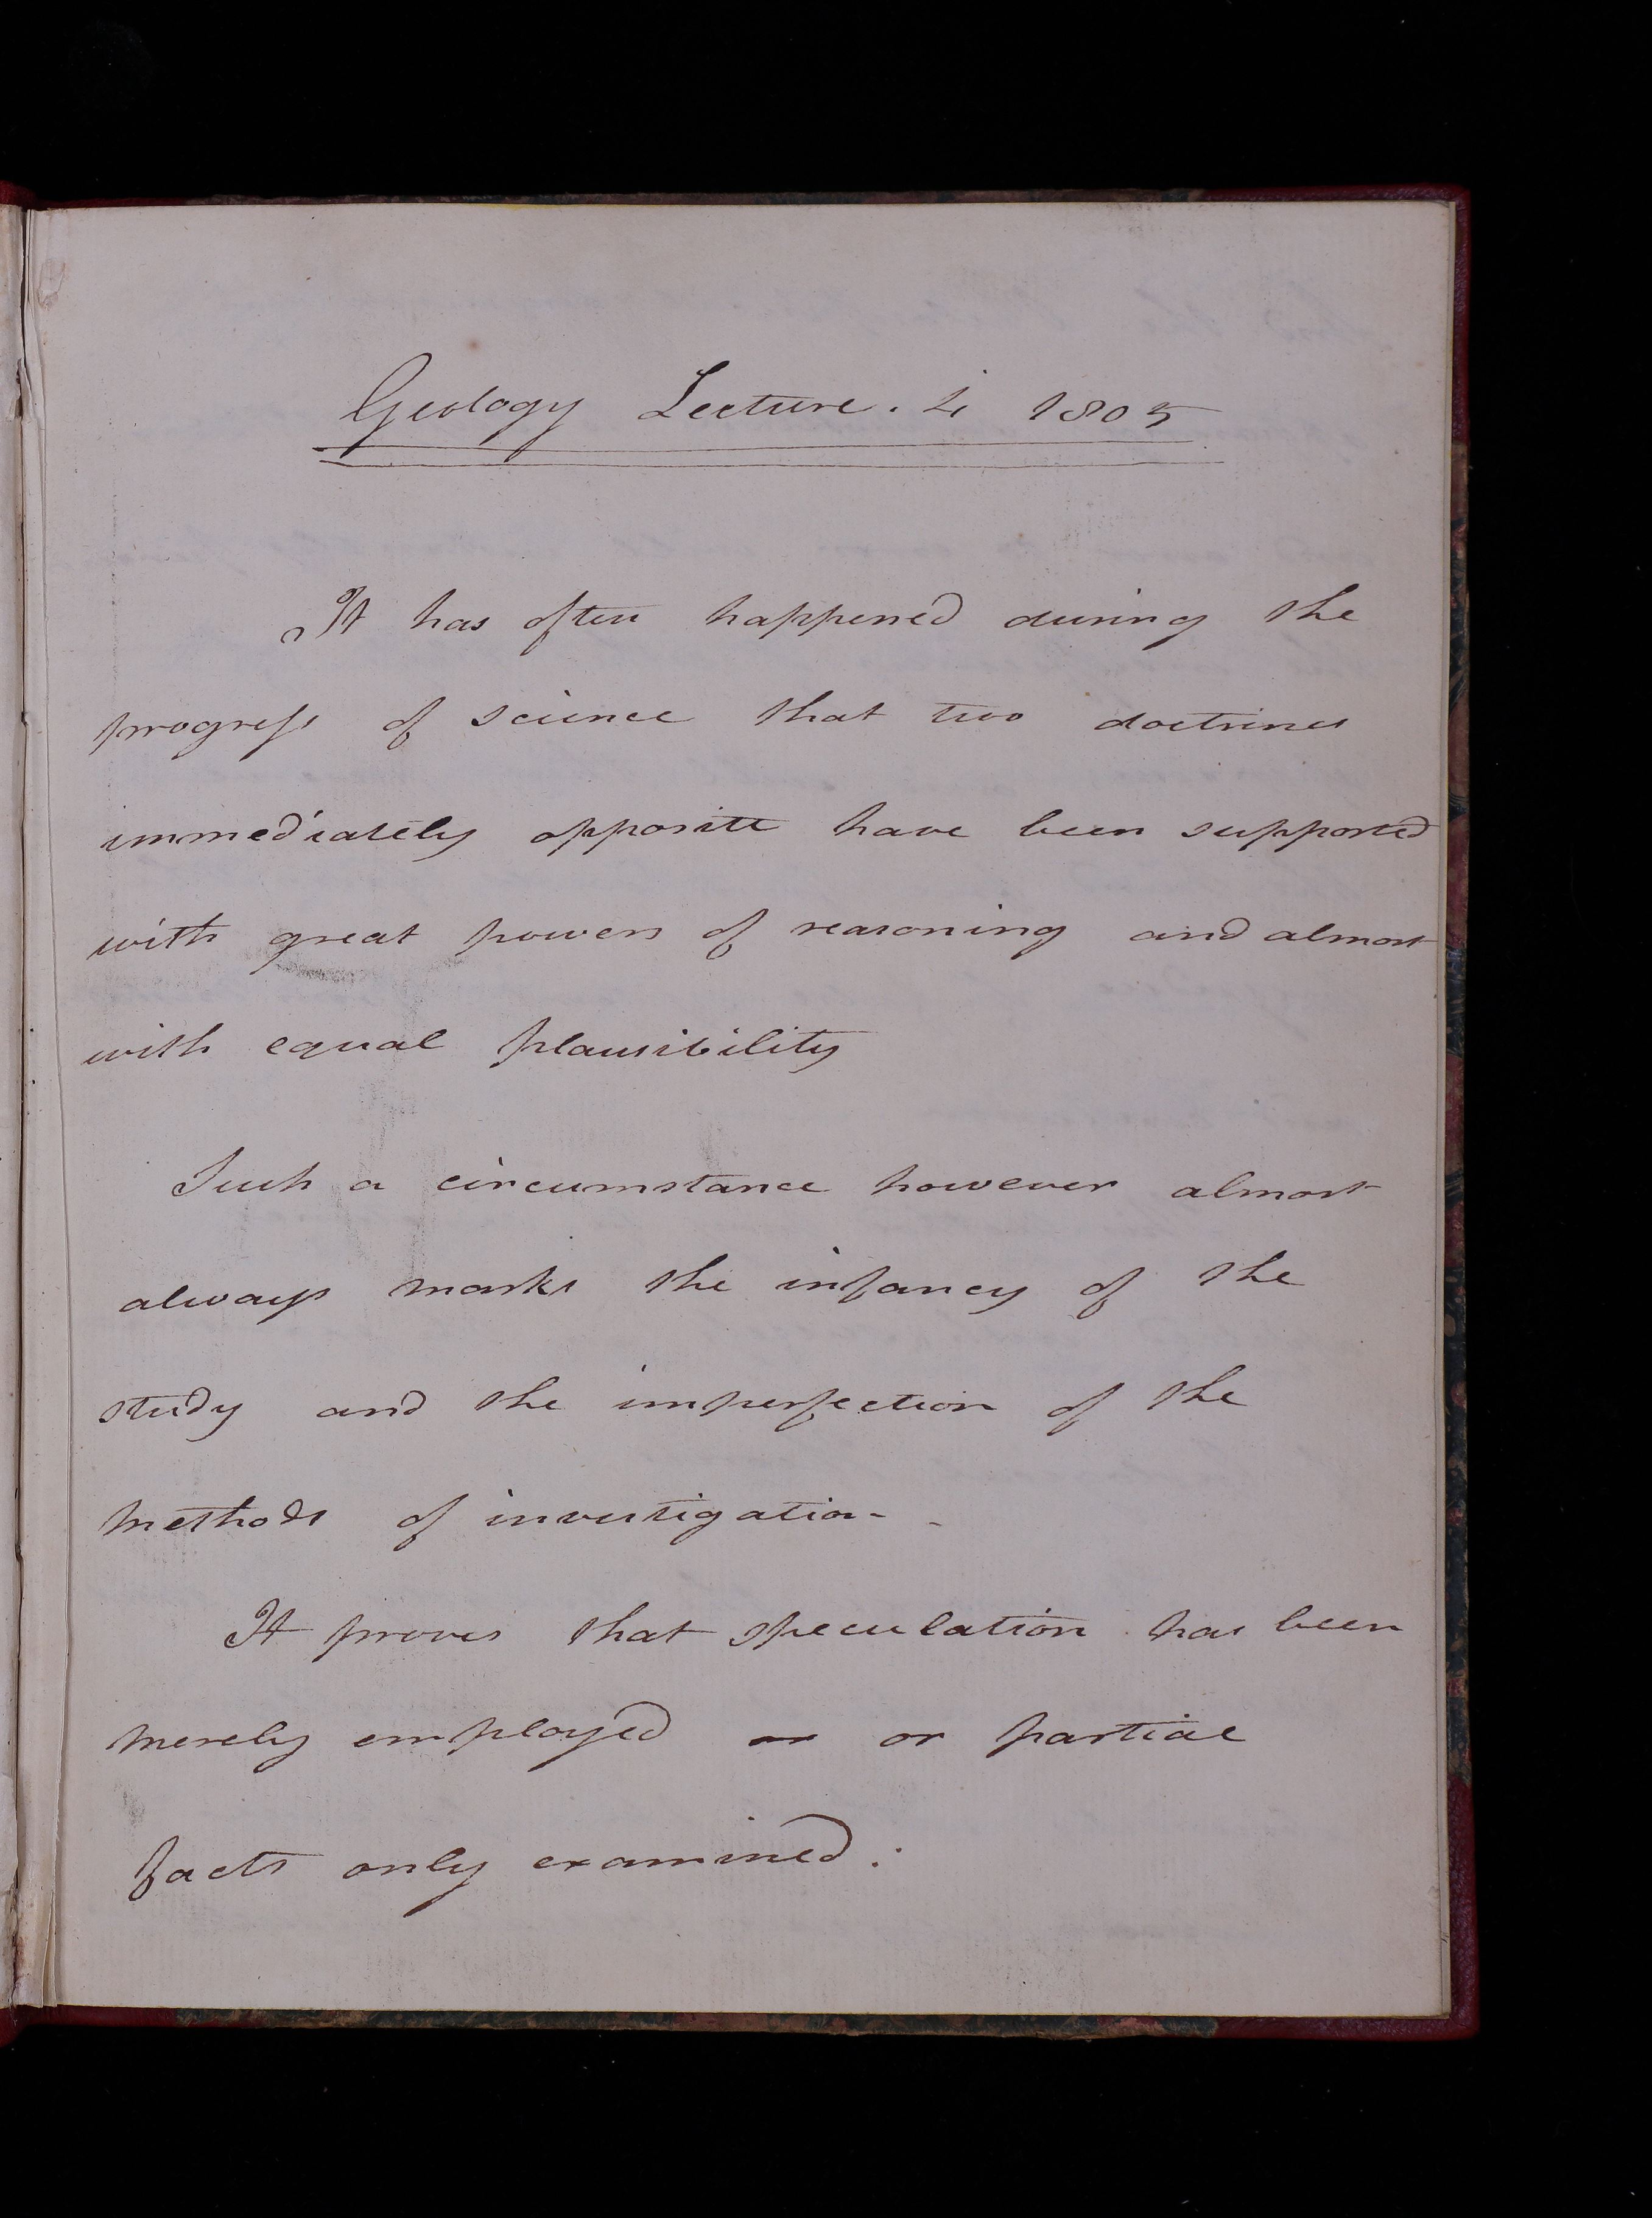 Geology Lecture. 4 1805
It has often happened during the
progress of science that two doctrines
immediately opposite have been supported
with great powers of reasoning and almost
with equal plausibility
Such a circumstance however almost
always marks the infancy of the
study and the imperfection of the
methods of investigation -
It proves that speculation has been
merely employed or or partial
facts only examined: